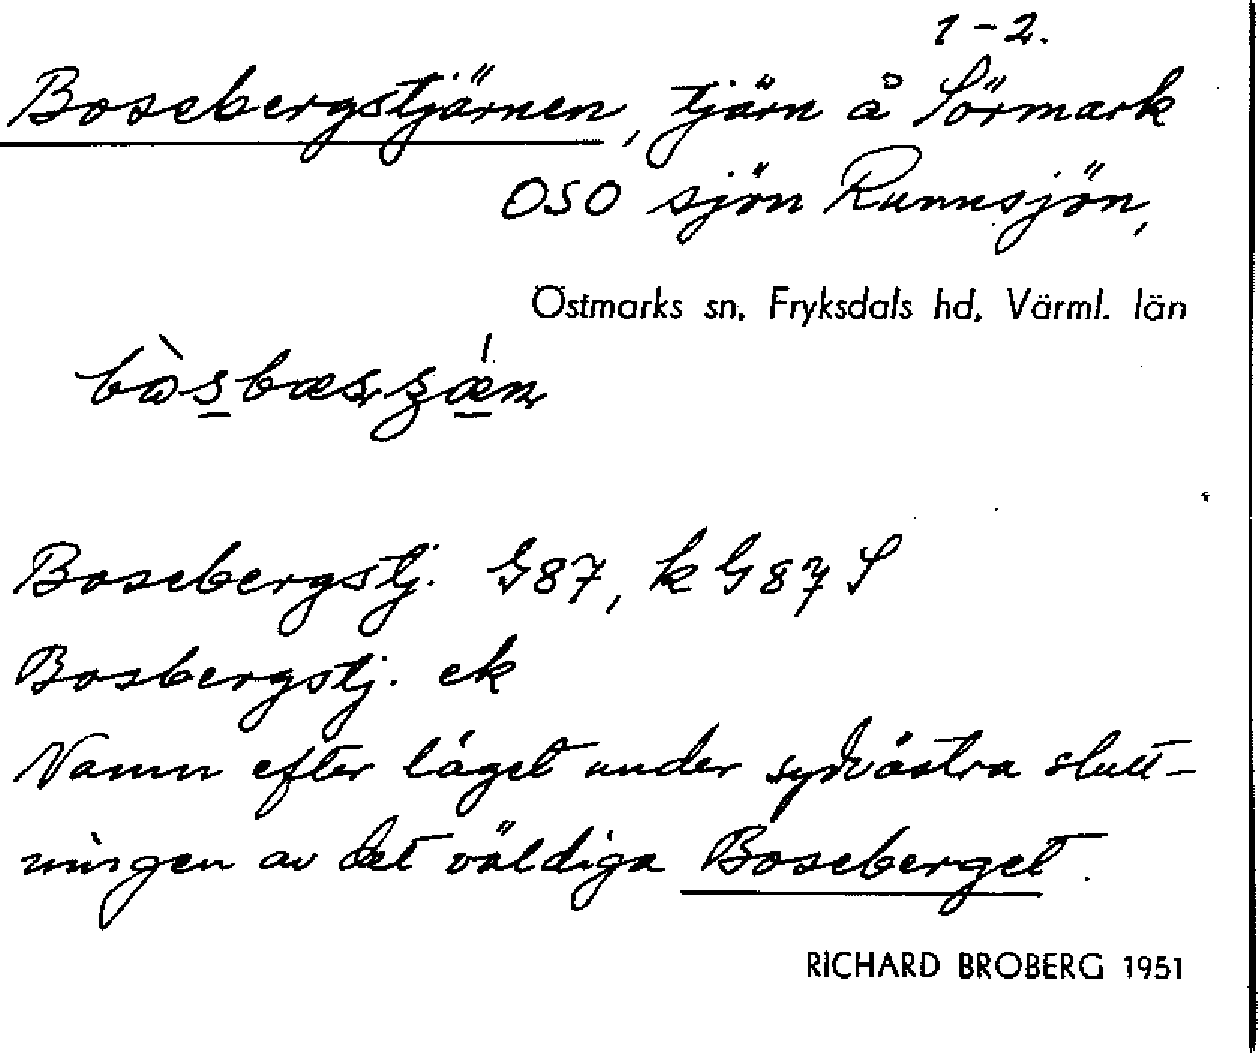 1-2.
Bosebergstjärnen, tjärn å Sörmark
OSO sjön Runnsjön,
Östmarks sn, Fryksdals hd, Värml. län
Bosebergstj. G87, k G87 S
Bosbergstj. ek
Namn efter läget under sydvästra slutt-
ningen av det väldiga Boseberget.
RICHARD BROBERG 1951